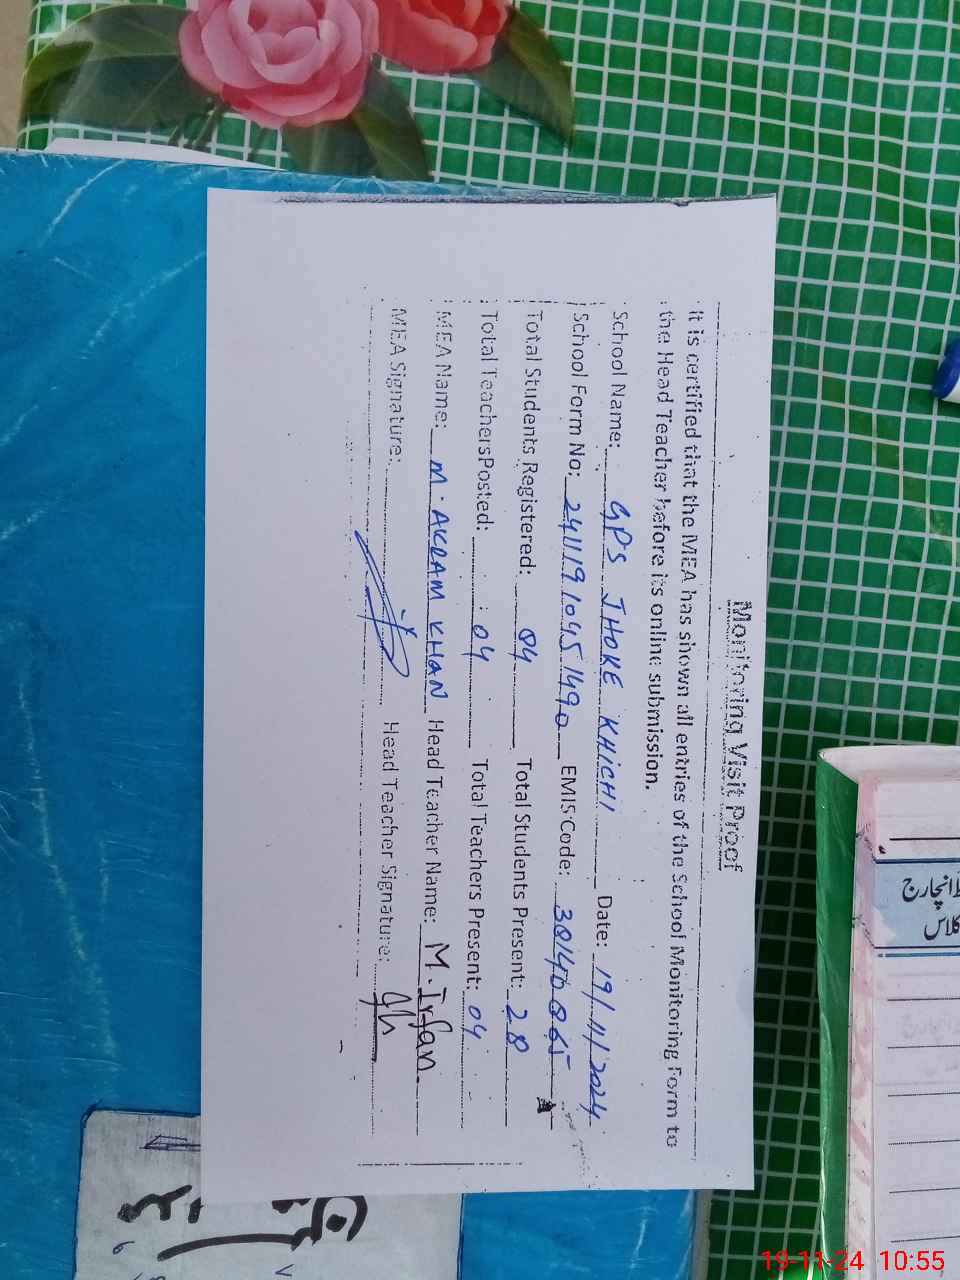 Monitoring Visit Proof
It is certified that the MEA has shown all entries of the School Monitoring Form to
the Head Teacher before its online submission.
School Name: GPS JHOKE KHICHI Date: 19/11/2024
School Form No: 24111910451490 EMIS Code: 30140065
Total Students Registered: 84 Total Students Present: 28
Total Teachers Posted: 04 Total Teachers Present: 04
MEA Name: M. AKRAM KHAN Head Teacher Name: M. Irfan
MEA Signature: Head Teacher Signature:
انچارج
کلاس
19-11-24 10:55